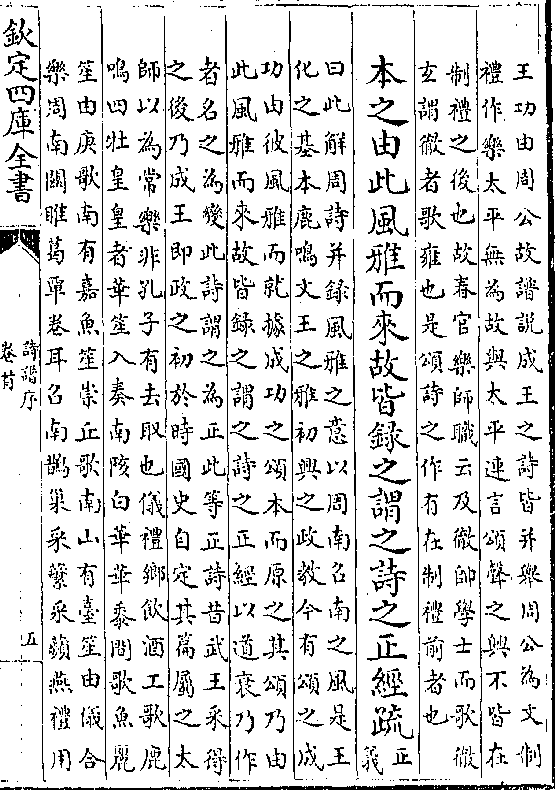 王功由周公故譜説成王之詩皆并舉周公為文制
禮作樂太平無為故與太平連言頌聲之興不皆在
制禮之後也故春官樂師職云及徹帥學士而歌徹
玄謂徹者歌雍也是頌詩之作有在制禮前者也
本之由此風雅而來故皆録之謂之詩之正經疏正義
曰此解周詩并録風雅之意以周南召南之風是王
化之基本鹿鳴文王之雅初興之政教今有頌之成
功由彼風雅而就據成功之頌本而原之其頌乃由
此風雅而來故皆録之謂之詩之正經以道衰乃作
者名之為變此詩謂之為正此等正詩昔武王采得
之後乃成王即政之初於時國史自定其篇屬之太
師以為常樂非孔子有去取也儀禮鄉飲酒工歌鹿
鳴四牡皇皇者華笙入奏南陔白華華黍間歌魚麗
笙由庚歌南有嘉魚笙崇丘歌南山有臺笙由儀合
樂周南關雎葛覃卷耳召南鵲巢采蘩采蘋燕禮用
欽定四庫全書
詩譜序
卷首
五